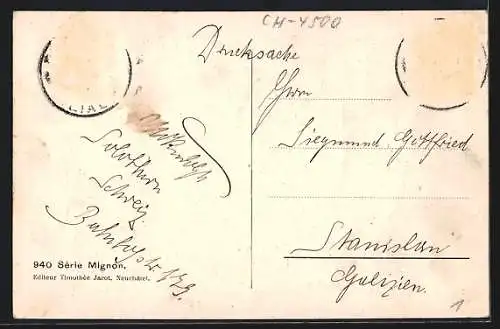 CH-4500
Drucksache
Herrn
Siegmund Gottfried
Stanislau
Galizien.
Solothurn
Schweiz
Bahnhofstr. 179.
940 Série Mignon.
Editeur Timothée Jacot, Neuchâtel.
LIAL
1